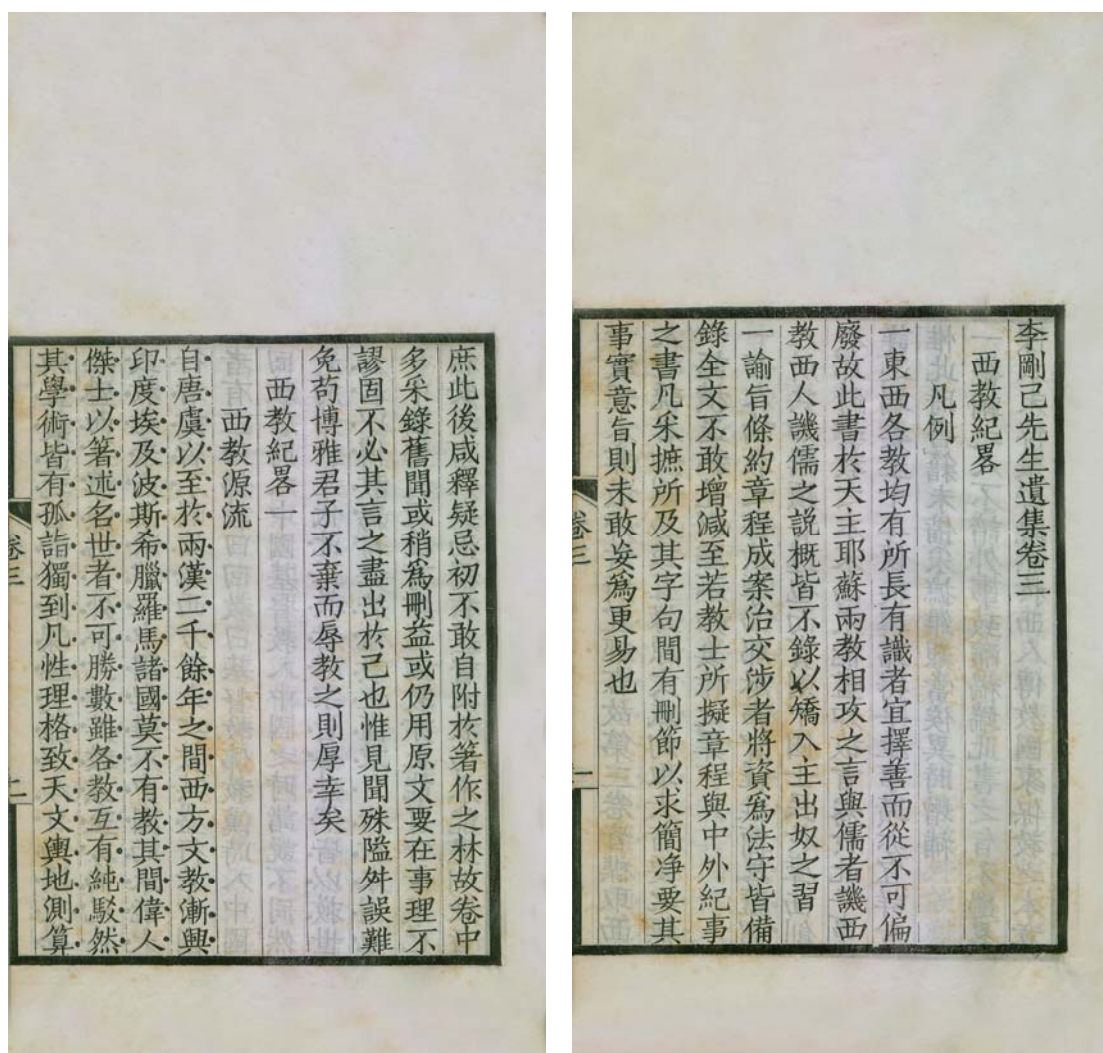 李剛己先生遺集卷三
西教紀畧
凡例
一東西各教均有所長有識者宜擇善而從不可偏
廢故此書於天主耶蘇兩教相攻之言與儒者譏西
教西人譏儒之説概皆不錄以矯入主出奴之習
一諭旨條約章程成案治交涉者將資爲法守皆備
錄全文不敢增減至若教士所擬章程與中外紀事
之書凡采摭所及其字句間有刪節以求簡净要其
事實意旨則未敢妄爲更易也
卷三
一
庶此後咸釋疑忌初不敢自附於著作之林故卷中
多采錄舊聞或稍爲刪益或仍用原文要在事理不
謬固不必其言之盡出於己也惟見聞殊隘舛誤難
免苟博雅君子不棄而辱教之則厚幸矣
西教紀畧一
西教源流
自唐虞以至於兩漢二千餘年之間西方文教漸興
印度埃及波斯希臘羅馬諸國莫不有教其間偉人
傑士以著述名世者不可勝數雖各教互有純駁然
其學術皆有孤詣獨到凡性理格致天文輿地測算
卷三
二